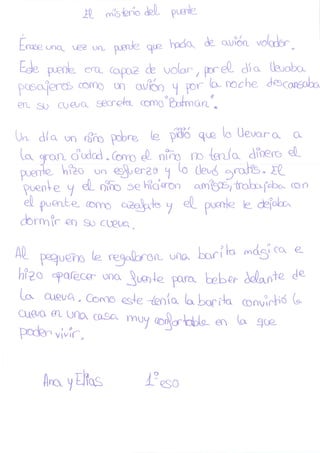 El misterio del puente
Érase una vez un puente que hacía de avión volador.
Este puente era capaz de volar, por el día llevaba
pasajeros como un avión y por la noche descansaba
en su cueva secreta como "Batman".
Un día un niño pobre le pidió que lo llevara a
la gran ciudad. Como el niño no tenía dinero el
puente hizo un esfuerzo y lo llevó gratis. El
puente y el niño se hicieron amigos, trabajaba con
el puente como azafato y el puente le dejaba
dormir en su cueva.
Al pequeño le regalaron una barita mágica e
hizo aparecer una fuente para beber delante de
la cueva. Como este tenía la barita convirtió la
cueva en una casa muy confortable en la que
poder vivir.
Ana y Elías 1º eso